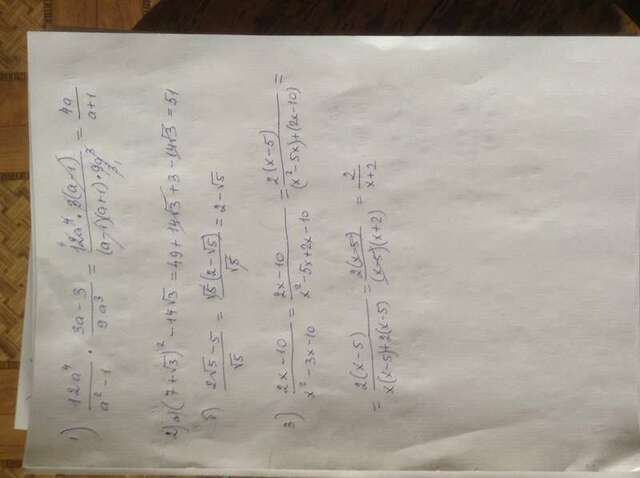 1) 12a⁴/(a²-1) · (3a-3)/(9a³) = (12a⁴·3(a-1))/((a-1)(a+1)·9a³) = 4a/(a+1)
2) а) (7+√3)² - 14√3 = 49 + 14√3 + 3 - 14√3 = 51
б) (2√5-5)/√5 = (√5(2-√5))/√5 = 2-√5
3) (2x-10)/(x²-3x-10) = (2x-10)/(x²-5x+2x-10) = (2(x-5))/((x²-5x)+(2x-10)) =
= (2(x-5))/(x(x-5)+2(x-5)) = (2(x-5))/((x-5)(x+2)) = 2/(x+2)